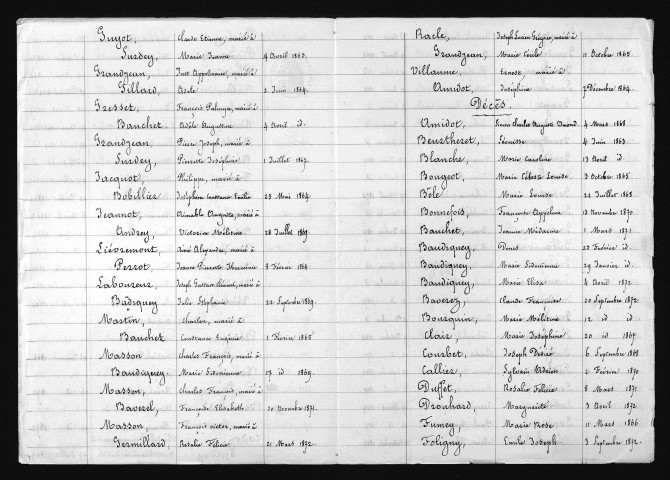 Guyot, Claude Etienne, marié à
Surdey, Marie Jeanne 4 Avril 1863.
Grandjean, Just Appolinaire, marié à
Pillard, Adèle 2 Juin 1864.
Gresset, François Palmyr, marié à
Banchet Adèle Augustine 4 Avril id.
Grandjean, Pierre Joseph, marié à
Surdey, Pierrette Joséphine 1 Juillet 1867.
Jacquot, Philippe, marié à
Bobillier Joséphine Constance Emilie 23 Mai 1864.
Jeannot, Aimable Auguste, marié à
Andrey, Victorine Mélitine 28 Juillet 1869.
Lièvremont, Aimé Alexandre, marié à
Perrot, Jeanne Pierrette 8 Février 1864
Laboureur, Joseph Gustave, marié à
Baudiquey Julie Stéphanie 22 Septembre 1869.
Martin, Charles, marié à
Banchet Constance Eugénie 1 Février 1865
Masson Charles François, marié à
Baudiquey, Marie Sidonienne 17 id 1869.
Masson, Charles François, marié à
Baverel, Françoise Elisabeth 30 Novembre 1871.
Masson, François Victor, marié à
Germillard, Rosalie Félicie 21 Mars 1872.
Racle, Joseph Lucien Grégoire, marié à
Grandjean, Marie Cécile 11 Octobre 1865
Villaume, Ernest, marié à
Amidot, Joséphine 7 Décembre 1864.
Décès.
Amidot, Charles Auguste 4 Mars 1868
Beurtheret Léonisse 4 Juin 1863
Blanche, Marie Caroline 13 Avril id.
Bongeot, Marie Louise 3 Octobre 1865
Bôle Marie Louise 22 Juillet 1868
Bonnefois, Françoise Appoline 18 Novembre 1870
Banchet, Jeanne 1 Mars 1871
Baudiquey, Denis 23 Février id.
Baudiquey, Marie Sidonienne 29 Janvier id.
Baudiquey, Marie Elisa 4 Avril 1872
Baverez, Claude Françoise 20 Septembre 1872
Bourquin, Marie Mélitine 12 id id
Clair, Marie Joséphine 20 id 1867
Courbet, Joseph Désiré 6 Septembre 1868
Callier, Sylvain Adrien 2 Février 1870
Duffet, Rosalie Félicie 8 Mars 1871
Drouhard, Marguerite 3 Avril 1872
Fumey, Marie Rose 11 Mars 1866
Foligny, Emile Joseph 3 Septembre 1872